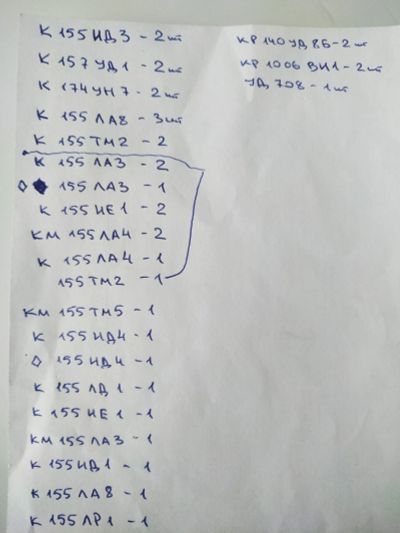 К 155 ИД 3 - 2 шт
К 157 УД 1 - 2 шт
К 174 УН 7 - 2 шт
К 155 ЛА8 - 3 шт
К 155 ТМ2 - 2
К 155 ЛА3 - 2
◇ 155 ЛА3 - 1
К 155 ИЕ1 - 2
КМ 155 ЛА4 - 2
К 155 ЛА4 - 1
155 ТМ2 - 1
КМ 155 ТМ5 - 1
К 155 ИД4 - 1
◇ 155 ИД4 - 1
К 155 ЛД1 - 1
К 155 ИЕ1 - 1
КМ 155 ЛА3 - 1
К 155 ИД1 - 1
К 155 ЛА8 - 1
К 155 ЛР1 - 1
КР 140 УД 8Б - 2 шт
КР 1006 ВИ1 - 2 шт
УД 708 - 1 шт